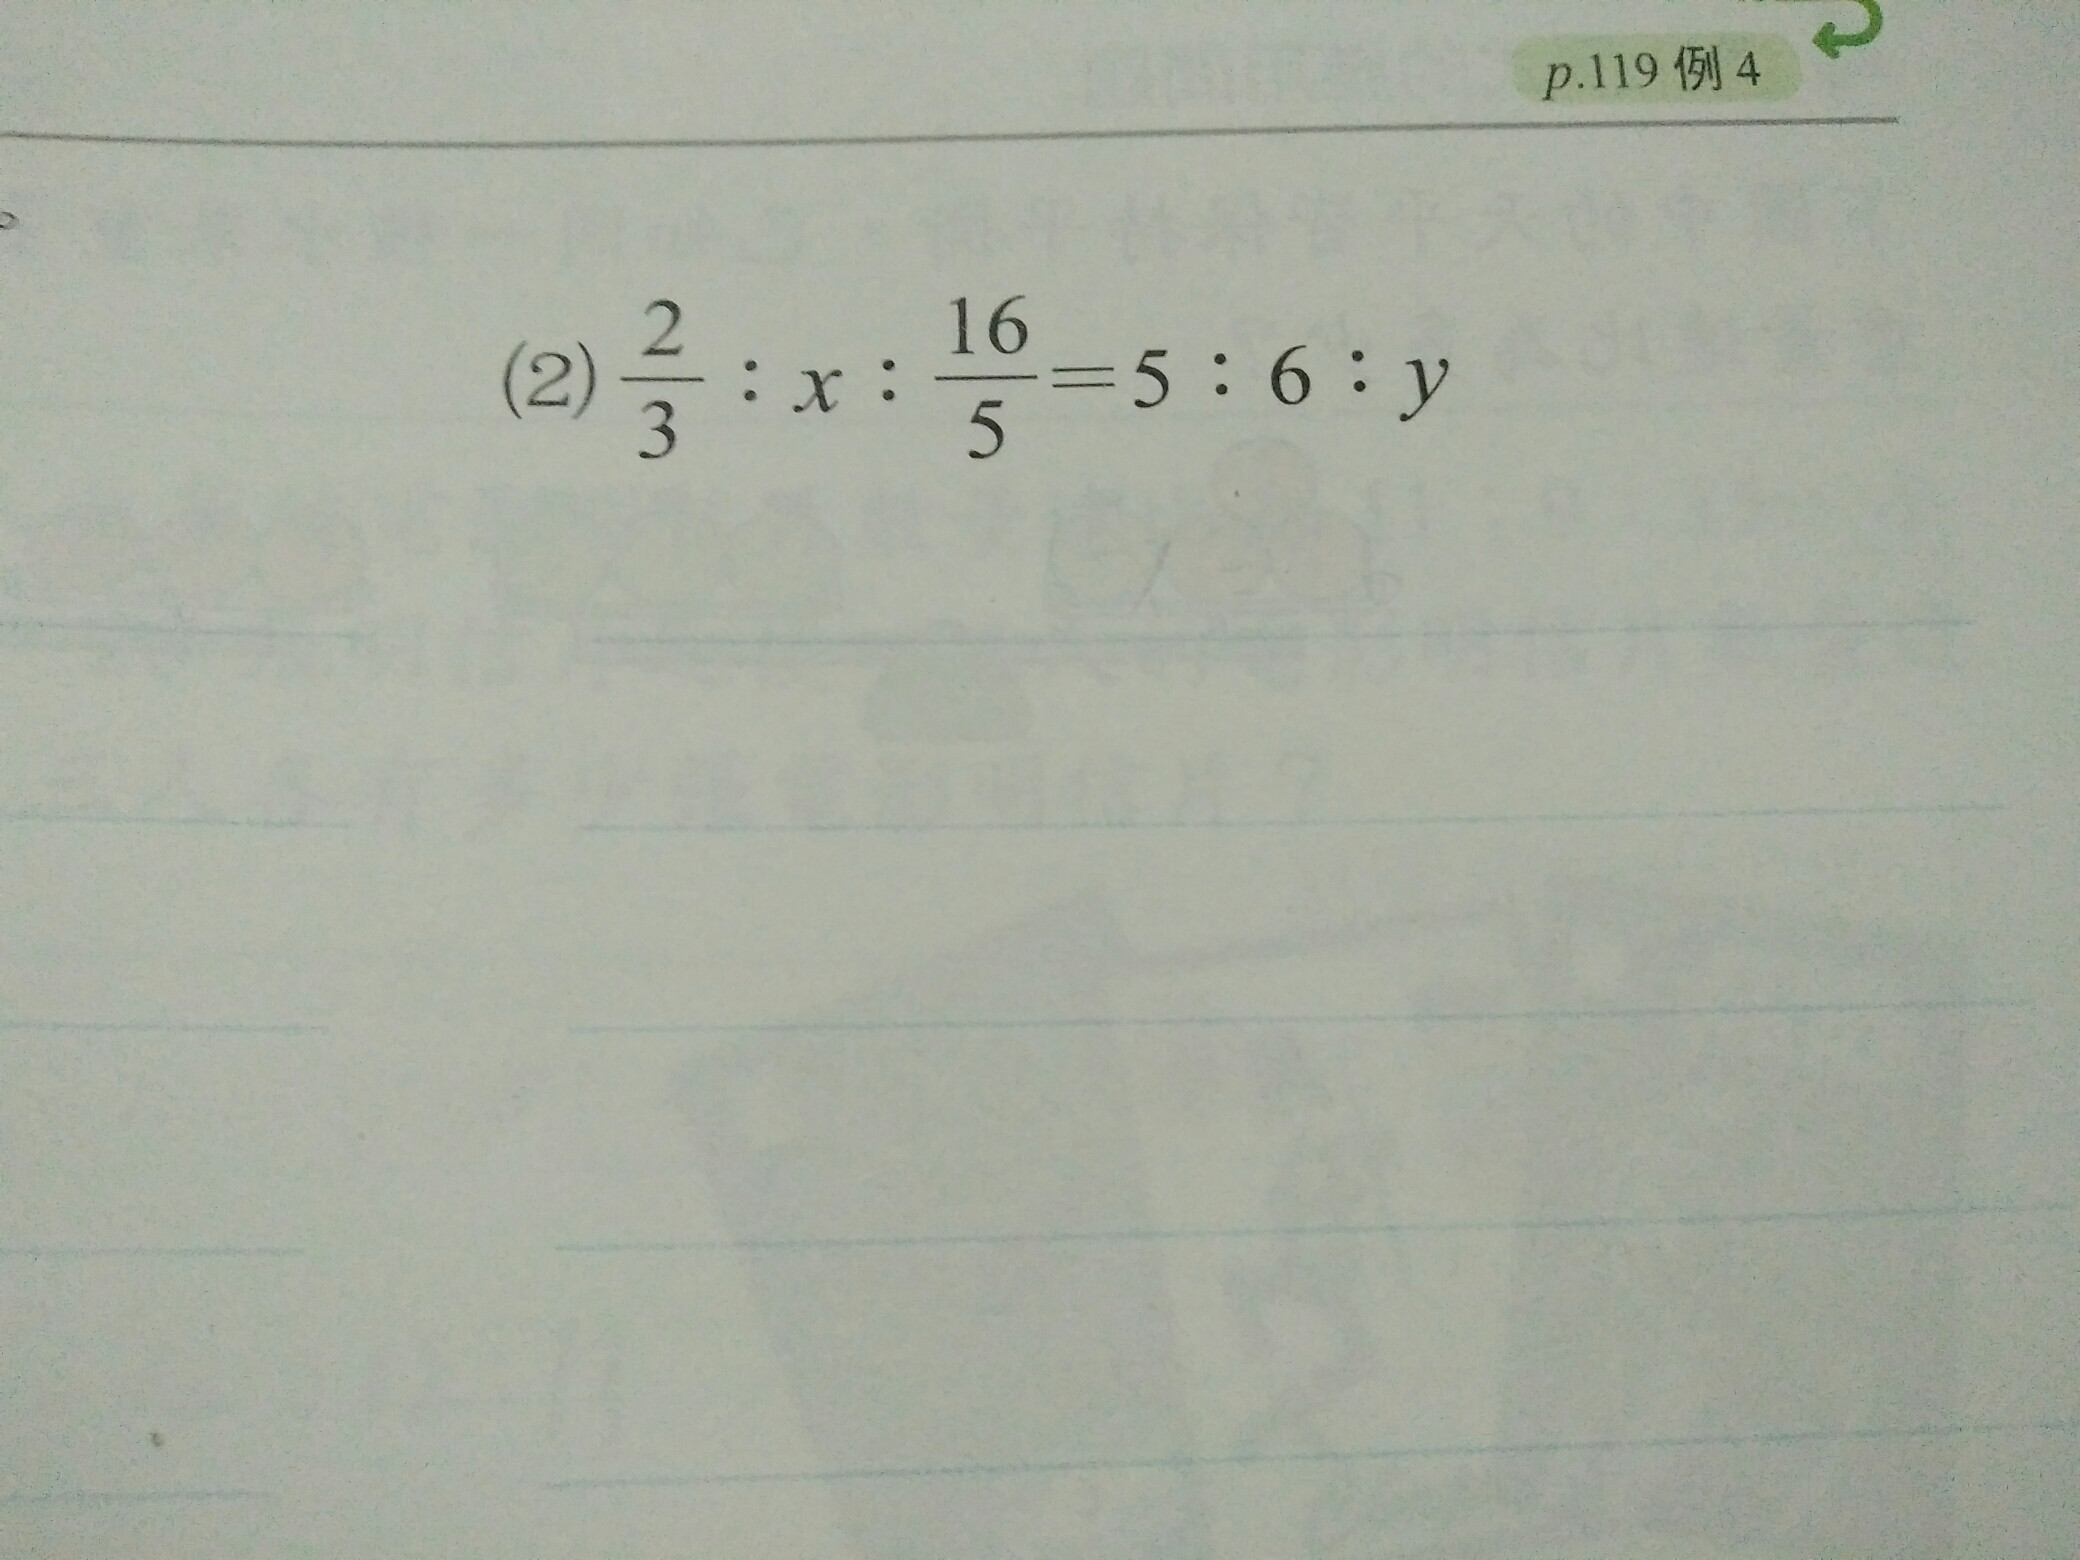 p.119 例 4
(2) 2/3 : x : 16/5 = 5 : 6 : y